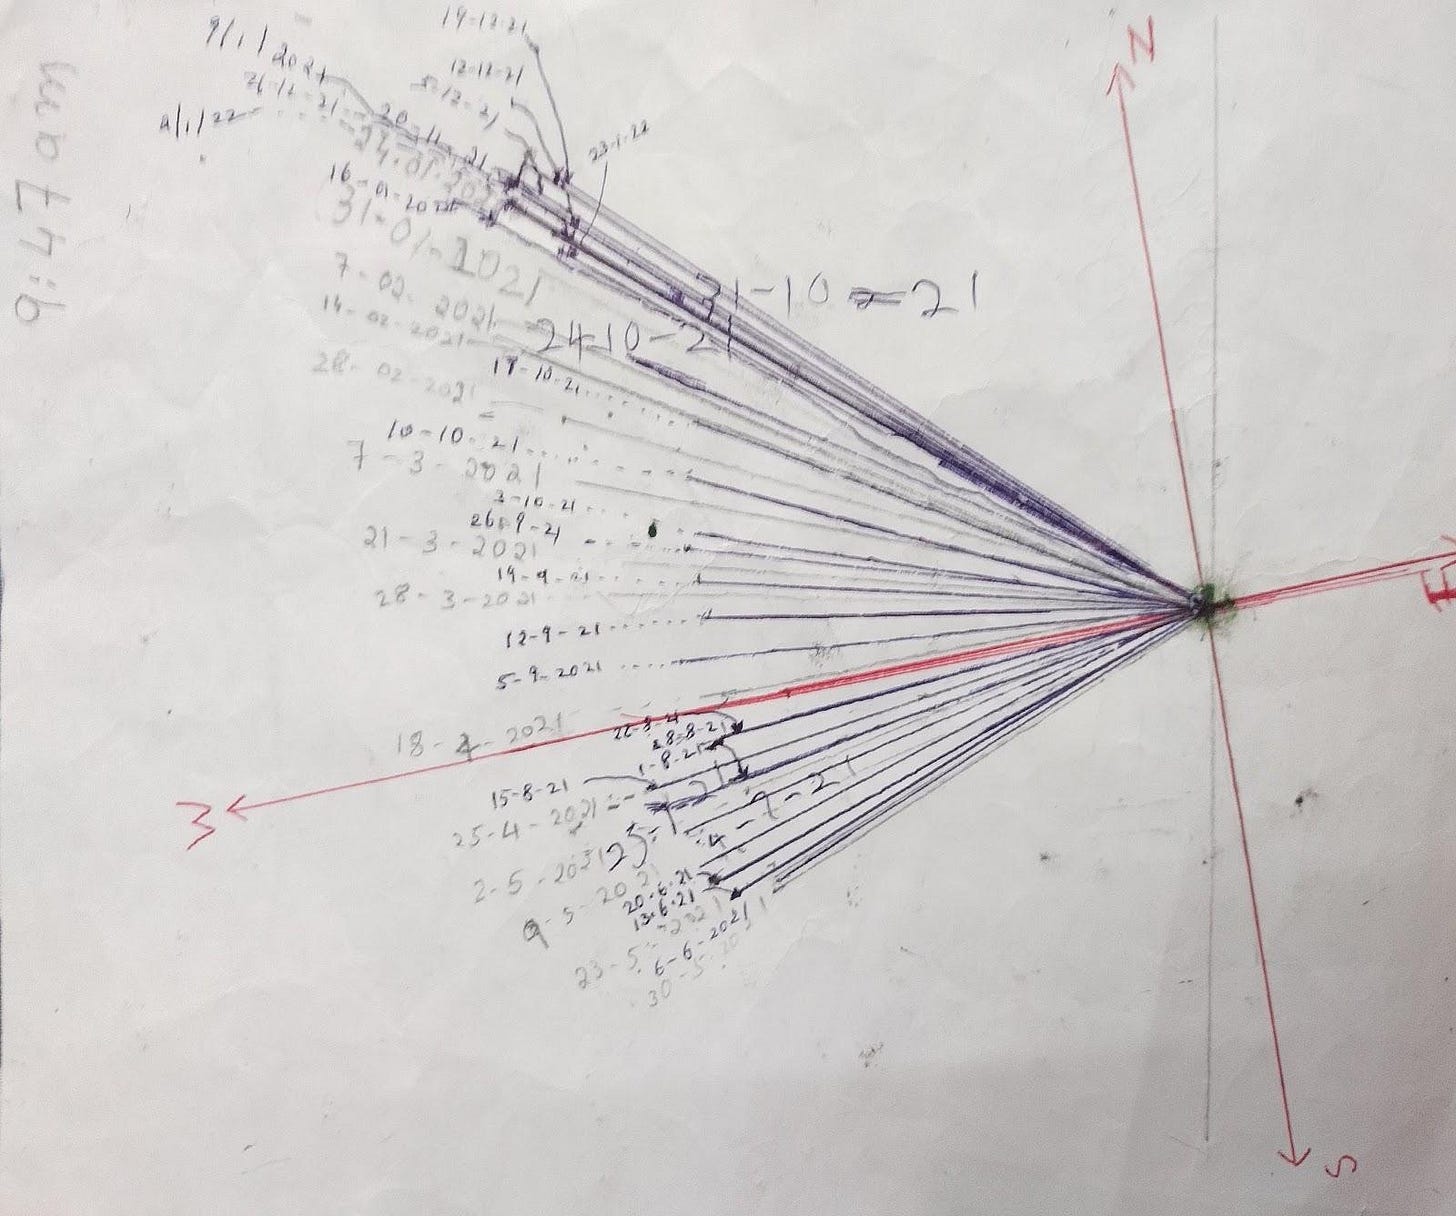 9:47 am
19-12-21
12-12-21
5-12-21
9/1/2021
26-12-21
20-11-21
23-1-22
16-01-2022
31-01-2021
7-02-2021
31-10-21
24-10-21
14-02-2021
17-10-21
28-02-2021
10-10-21
7-3-2021
3-10-21
26-9-21
21-3-2021
19-9-21
28-3-2021
12-9-21
5-9-2021
18-4-2021
28-8-21
1-8-21
15-8-21
25-4-2021
4-7-21
2-5-2021
9-5-2021
20-6-21
13-6-21
23-5-2021
6-6-2021
N
E
W
S